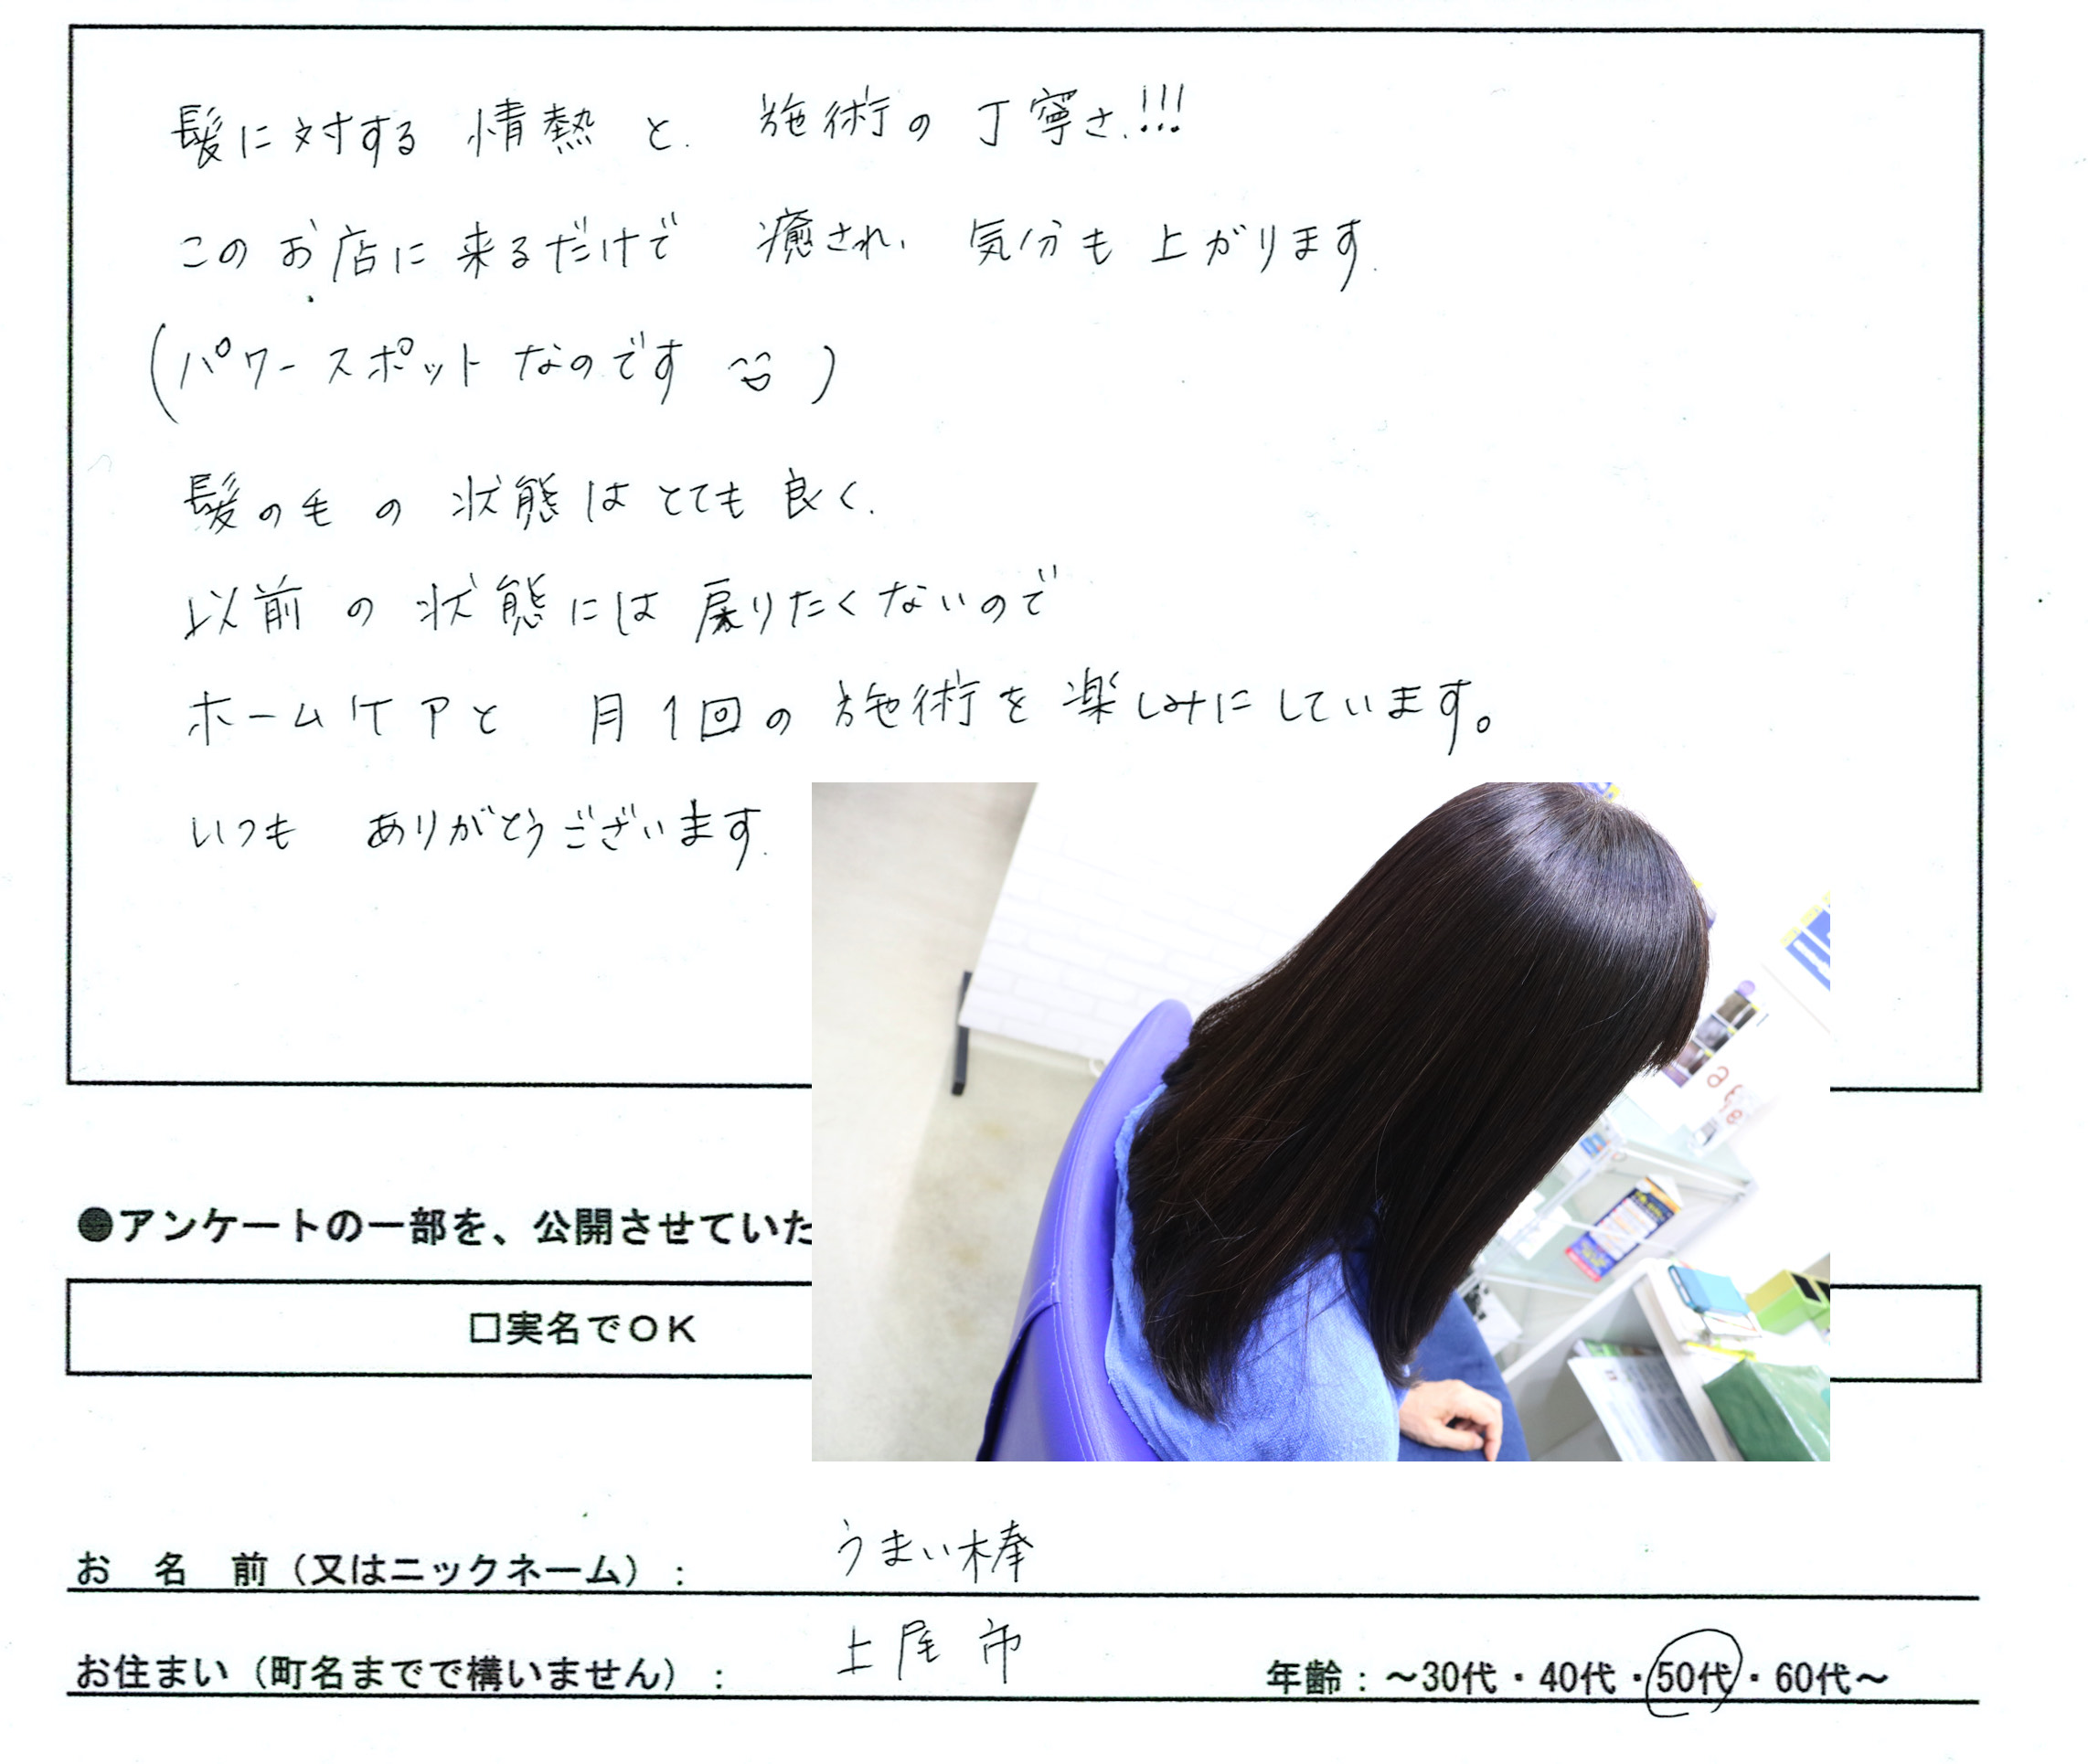 髪に対する 情熱 と. 施術の 丁寧さ.!!!
このお店に来るだけで 癒され、気分も上がります.
(パワースポットなのです )
髪の毛の状態はとても良く.
以前の状態には戻りたくないので
ホームケアと 月1回の施術を楽しみにしています。
いつも ありがとうございます.
●アンケートの一部を、公開させていた
□実名でOK
お 名 前（又はニックネーム）： うまい棒
お住まい（町名までで構いません）： 上尾市 年齢：～30代・40代・50代・60代～